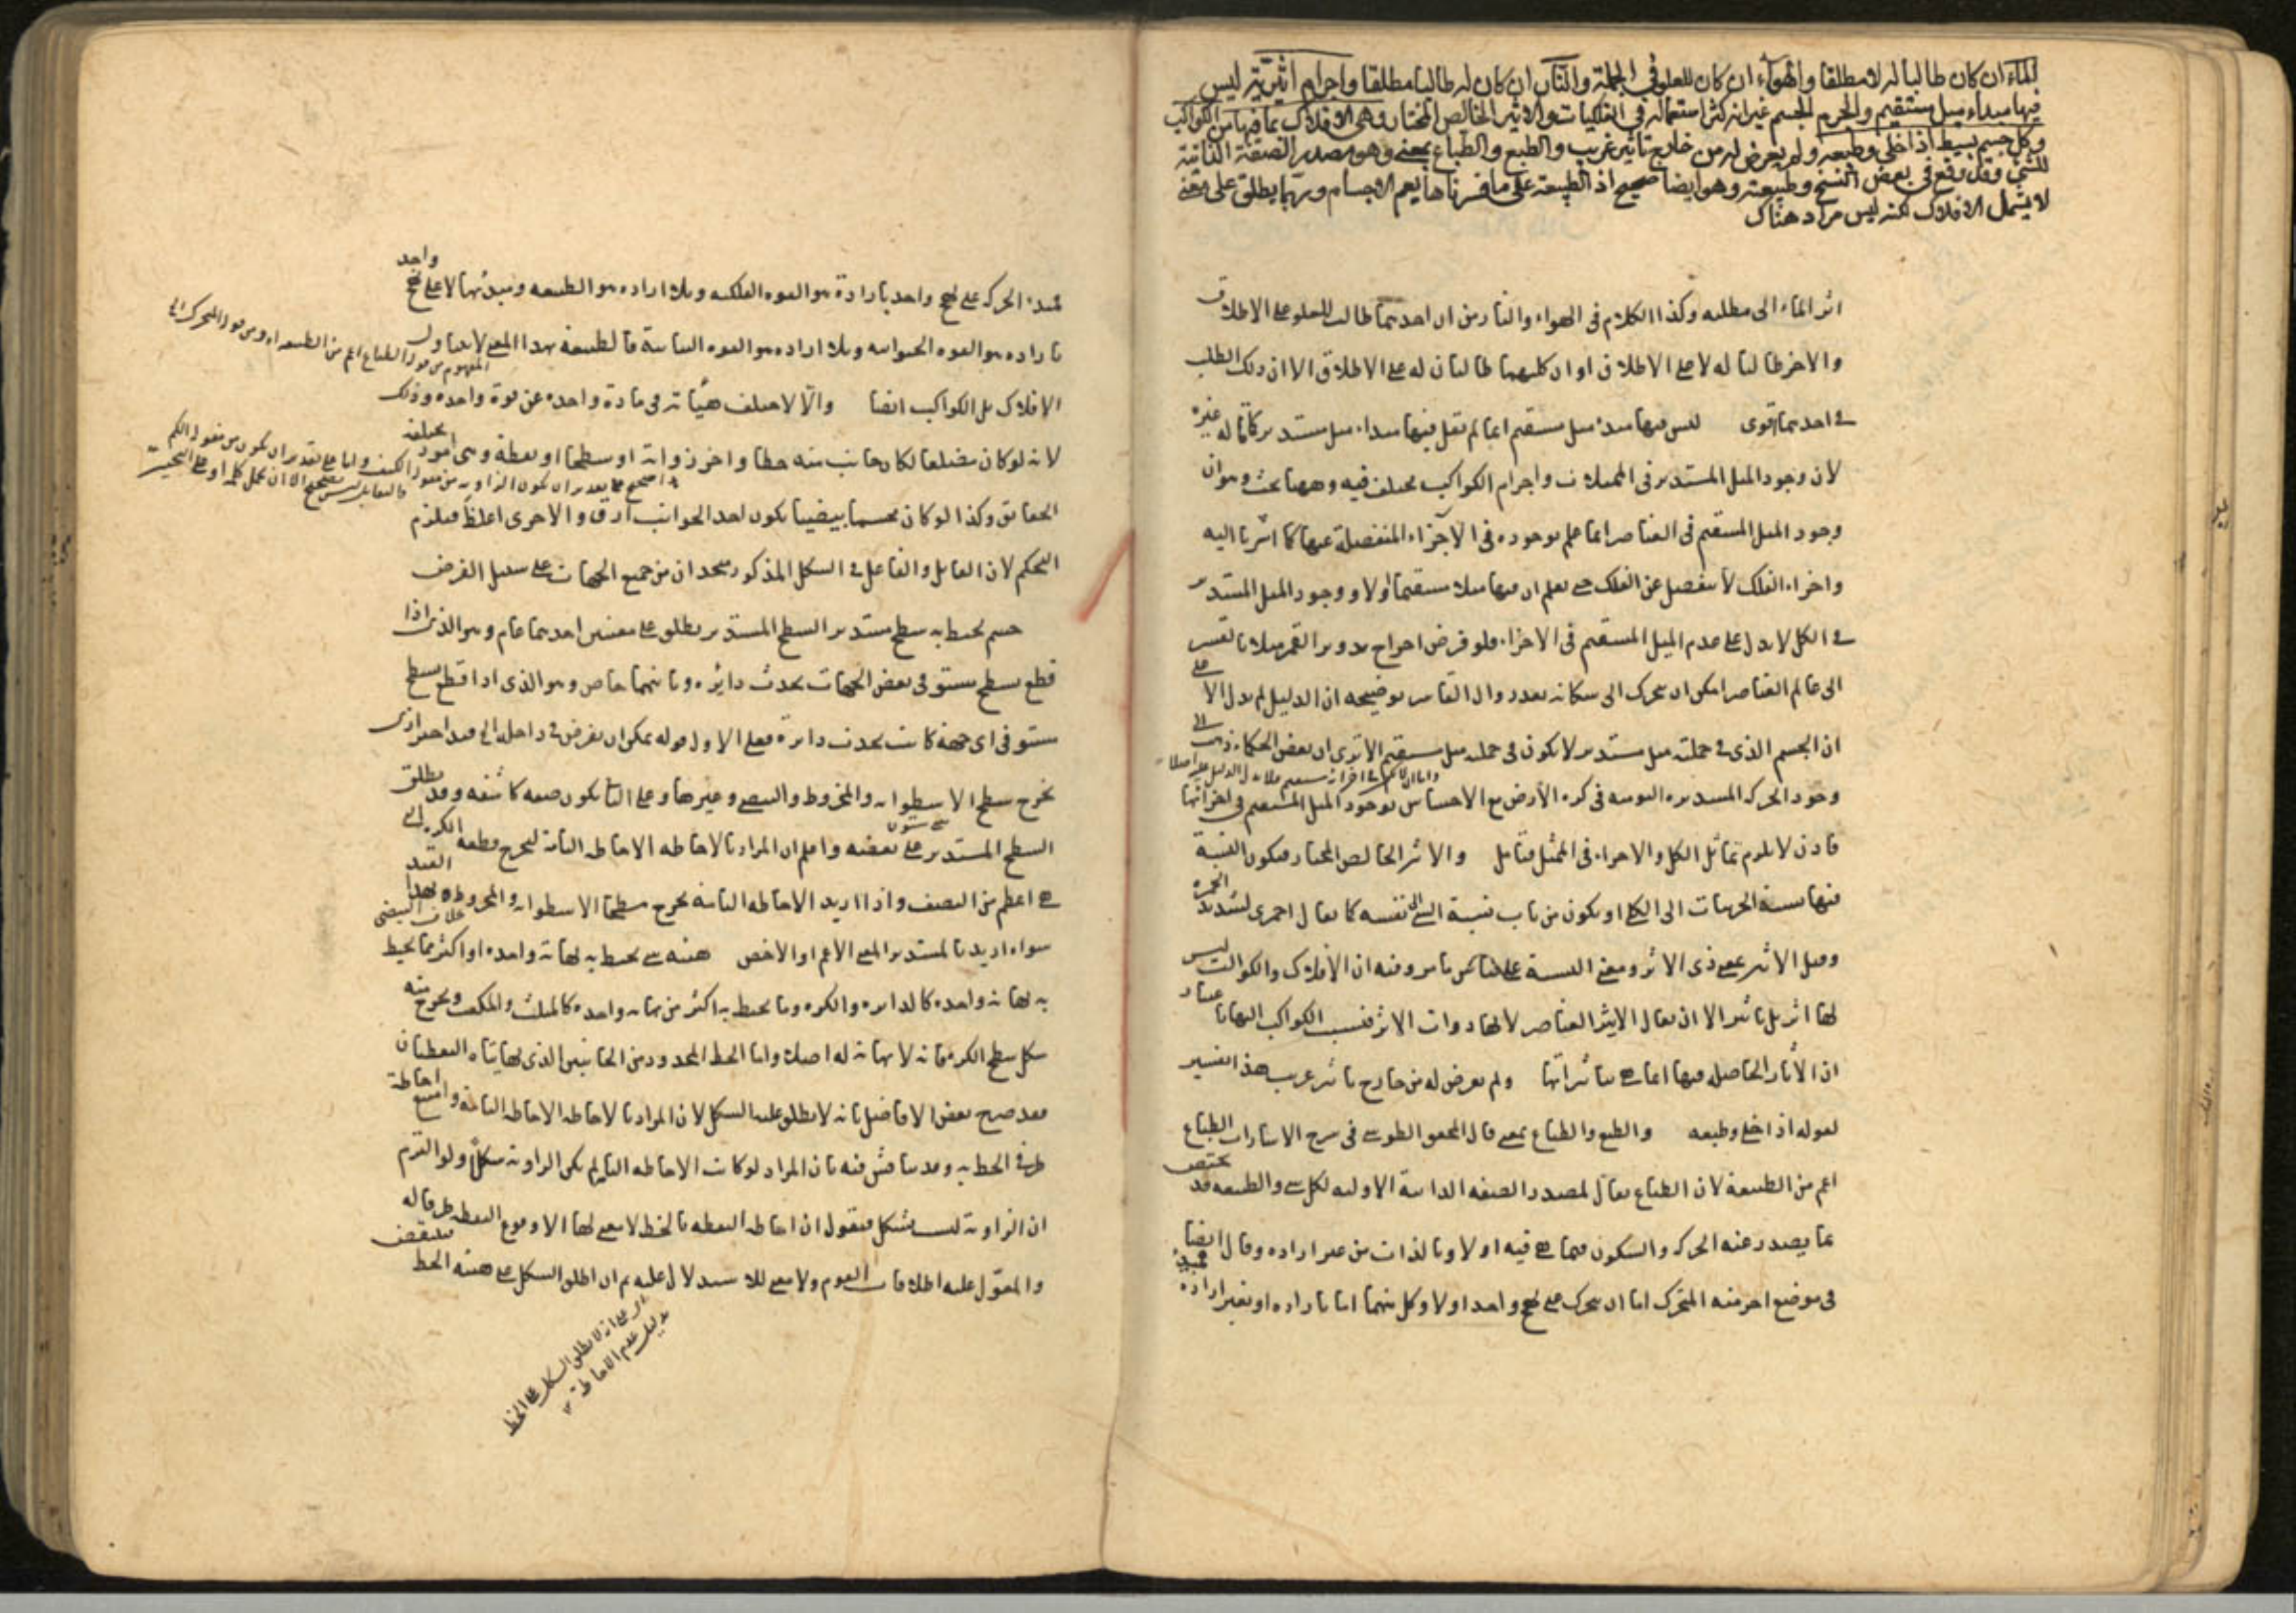 الماء ان كان طالبا له لا مطلقا والهواء ان كان للعلو في الجملة والنار ان كان له طالبا مطلقا واجرام اثيرية ليس
فيها مبداء ميل مستقيم والجرم الجسم غير انه كثر استعماله في الفلكيات والاثير الخالص المختار وهي الافلاك بما فيها من الكواكب
وكل جسم بسيط اذا خلى وطبعه ولم يعرض له من خارج تاثير غريب والطبع والطباع بمعنى وهو مصدر الصفة الذاتية
للشئ وقد وقع في بعض النسخ وطبيعته وهو ايضا صحيح اذ الطبيعة على ما فسرناها يعم الاجسام وربما يطلق على معنى
لا يشمل الافلاك لكنه ليس مراد هناك
اثر الماء الى مطلبه وكذا الكلام في الهواء والنار من ان احدهما طالب للعلو على الاطلاق
والاخر طالبا له لا على الاطلاق او ان كليهما طالبان له على الاطلاق الا ان ذلك الطلب
في احدهما اقوى ليس فيها مبدء ميل مستقيم انما لم يقل فيها مبداء ميل مستدير كما قاله غيره
لان وجود الميل المستدير في الممثلات واجرام الكواكب مختلف فيه وههنا بحث وهو ان
وجود الميل المستقيم في العناصر انما علم بوجوده في الاجزاء المنفصلة عنها كما اشرنا اليه
واجزاء الفلك لا تنفصل عن الفلك حتى يعلم ان فيها ميلا مستقيما او لا ووجود الميل المستدير
في الكل لا يدل على عدم الميل المستقيم في الاجزاء فلو فرض اخراج تدوير القمر مثلا بالقسر
الى عالم العناصر امكن ان يتحرك الى مكانه بعد زوال القاسر توضيحه ان الدليل لم يدل الا على
ان الجسم الذي في جملته ميل مستدير لا يكون في جملته ميل مستقيم الا ترى ان بعض الحكماء ذهب الى
واما ان لا يكون في اجزائه مستقيم فلا يدل الدليل عليه اصلا
وجود الحركة المستديرة اليومية في كرة الارض مع الاحساس بوجود الميل المستقيم في اجزائها
فاذن لا يلزم تماثل الكل والاجزاء في الميل فتأمل والاثير الخالص المختار فيكون النسبة
فيها نسبة الجزئيات الى الكلي او يكون من باب نسبة الشئ الى نفسه كما يقال احمري لشديد الحمرة
وقيل الاثير بمعنى ذي الاثر ومعنى النسبة على قياس ما مر وفيه ان الافلاك والكواكب ليس
لها اثر بل تأثير الا ان يقال الاثير العناصر لانها ذوات الاثر فنسب الكواكب اليها باعتبار
ان الآثار الحاصلة فيها انما هي بتأثيراتها ولم يعرض له من خارج تاثير غريب هذا تفسير
لقوله اذا خلى وطبعه والطبع والطباع بمعنى قال المحقق الطوسي في شرح الاشارات الطباع
اعم من الطبيعة لان الطباع يقال لمصدر الصفة الذاتية الاولية لكل شئ والطبيعة قد يختص
بما يصدر عنه الحركة والسكون فيما هي فيه اولا وبالذات من غير ارادة وقال ايضا
في موضع اخر منه المتحرك اما ان يتحرك على نهج واحد او لا وكل منهما اما بارادة او بغير ارادة فمبدء
فمبدء الحركة على نهج واحد بارادة هو القوة الفلكية وبلا ارادة هو الطبيعة ومبدئها لا على نهج واحد
بارادة هو القوة الحيوانية وبلا ارادة هو القوة النباتية فالطبيعة بهذا المعنى لا يتناول
المفهوم من قوله الطباع اعم من الطبيعة ومن قوله المتحرك الخ
الافلاك بل الكواكب ايضا والا لاختلف هيأته في مادة واحدة عن قوة واحدة وذلك
لانه لو كان مضلعا لكان جانب منه خطا واخر زواية او سطحا او نقطة وهي امور مختلفة
الحقائق وكذا لو كان مجسما بيضيا يكون احد الجوانب ادق والاخرى اغلظ فيلزم
التحكم لان القابل والفاعل في الشكل المذكور متحدان من جميع الجهات على سبيل الفرض
جسم يحيط به سطح مستدير السطح المستدير يطلق على معنيين احدهما عام وهو الذي اذا
قطع بسطح مستو في بعض الجهات يحدث دايرة وثانيهما خاص وهو الذي اذا قطع بسطح
مستو في اي جهة كانت يحدث دايرة فعلى الاول قوله يمكن ان يفرض في داخله الخ قيد احترازي
يخرج سطح الاسطوانة والمخروط والبيضي وغيرها وعلى الثاني يكون صفة كاشفة وقد يطلق
السطح المستدير على بعضه واعلم ان المراد بالاحاطة الاحاطة التامة ليخرج قطعة الكرة التي
هي اعظم من النصف واذا اريد الاحاطة التامة يخرج سطحا الاسطوانة والمخروط بهذا القيد
سواء اريد بالمستدير المعنى الاعم او الاخص هيئة شئ يحيط به نهاية واحدة او اكثر مما يحيط
به نهاية واحدة كالدايرة والكرة وما يحيط به اكثر من نهاية واحدة كالمثلث والمكعب ويخرج منه
شكل سطح الكرة فانه لا نهاية له اصلا واما الخط المحدود من الجانبين الذي نهايتاه النقطتان
فقد صرح بعض الافاضل بانه لا يطلق عليه الشكل لان المراد بالاحاطة الاحاطة التامة وامتنع احاطة
طرفي الخط به وقد يناقش فيه بان المراد لو كانت الاحاطة التامة لم يكن الزاوية شكلا ولو التزم
ان الزاوية ليست بشكل فنقول ان احاطة النقطة بالخط لا معنى لها الا وقوع النقطة طرفا له
والمعول عليه اطلاقات القوم ولا معنى للاستدلال عليه ثم ان اطلق الشكل على هيئة الخط فينتقض
اي على انه لا يطلق الشكل على الخط
بدليل عدم الاحاطة